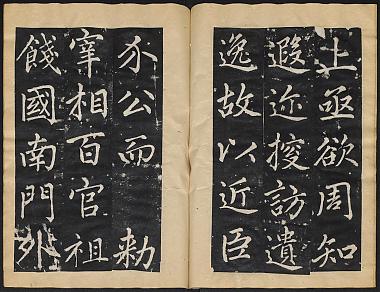 上亟欲周知
遐迩搜訪遺
逸故以近臣
尒公而勑
宰相百官祖
餞國南門外